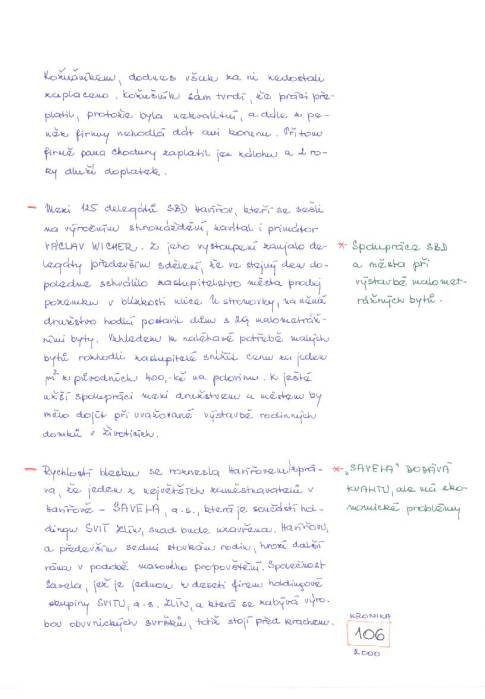 Kožušníkem, dodnes však za ni nedostali
zaplaceno. Kožušník sám tvrdí, že práci pře-
platil, protože byla nekvalitní, a dále z pe-
něz firmy nehodlá dát ani korunu. Přitom
firmě pana Chodury zaplatil jen zálohu a 2 ro-
ky dluží doplatek.
– Mezi 125 delegátů SBD Havířov, kteří se sešli
na výročním shromáždění, zavítal i primátor
VÁCLAV WICHER. Z jeho vystoupení zaujalo de-
legáty především sdělení, že ve stejný den do-
poledne schválilo zastupitelstvo města prodej
pozemku v blízkosti ulice U stromovky, na němž
družstvo hodlá postavit dům s 29 malometráž-
ními byty. Vzhledem k naléhavé potřebě malých
bytů rozhodli zastupitelé snížit cenu za jeden
m² z původních 400,-kč na polovinu. K ještě
užší spolupráci mezi družstvem a městem by
mělo dojít při uvažované výstavbě rodinných
domků v Životicích.
* Spolupráce SBD
a města při
výstavbě malomet-
rážných bytů.
– Rychlostí blesku se roznesla Havířovem zprá-
va, že jeden z největších zaměstnavatelů v
Havířově – SAVELA, a.s., která je součástí hol-
dingu SVIT ZLÍN, snad bude uzavřena. Havířovu,
a především sedmi stovkám rodin, hrozí další
rána v podobě masového propouštění. Společnost
Savela, jež je jednou z deseti firem holdingové
skupiny SVITU, a.s. ZLÍN, a která se zabývá výro-
bou obuvnických svršků, totiž stojí před krachem.
* „SAVELA" DOBÝVÁ
KVALITU, ale má eko-
nomické problémy
KRONIKA
106
2000